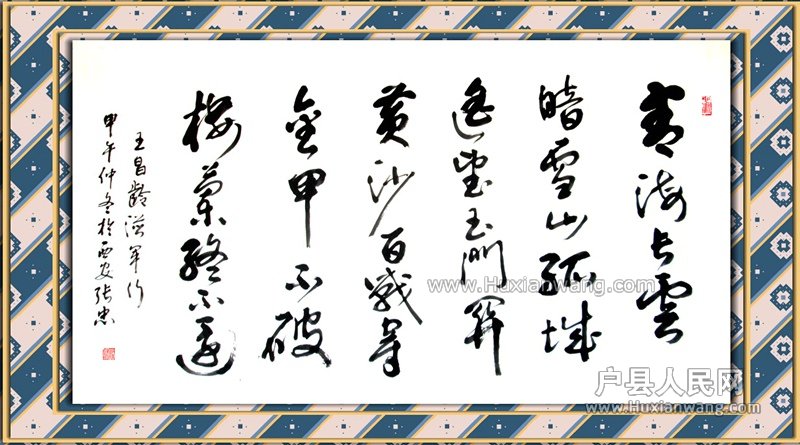 青海長雲
暗雪山孤城
遥望玉門関
黄沙百戰穿
金甲不破
樓蘭終不還
王昌齡從軍行
甲午仲冬於西安張忠
www.Huxianwang.com
户县人民网
www.Huxianwang.com